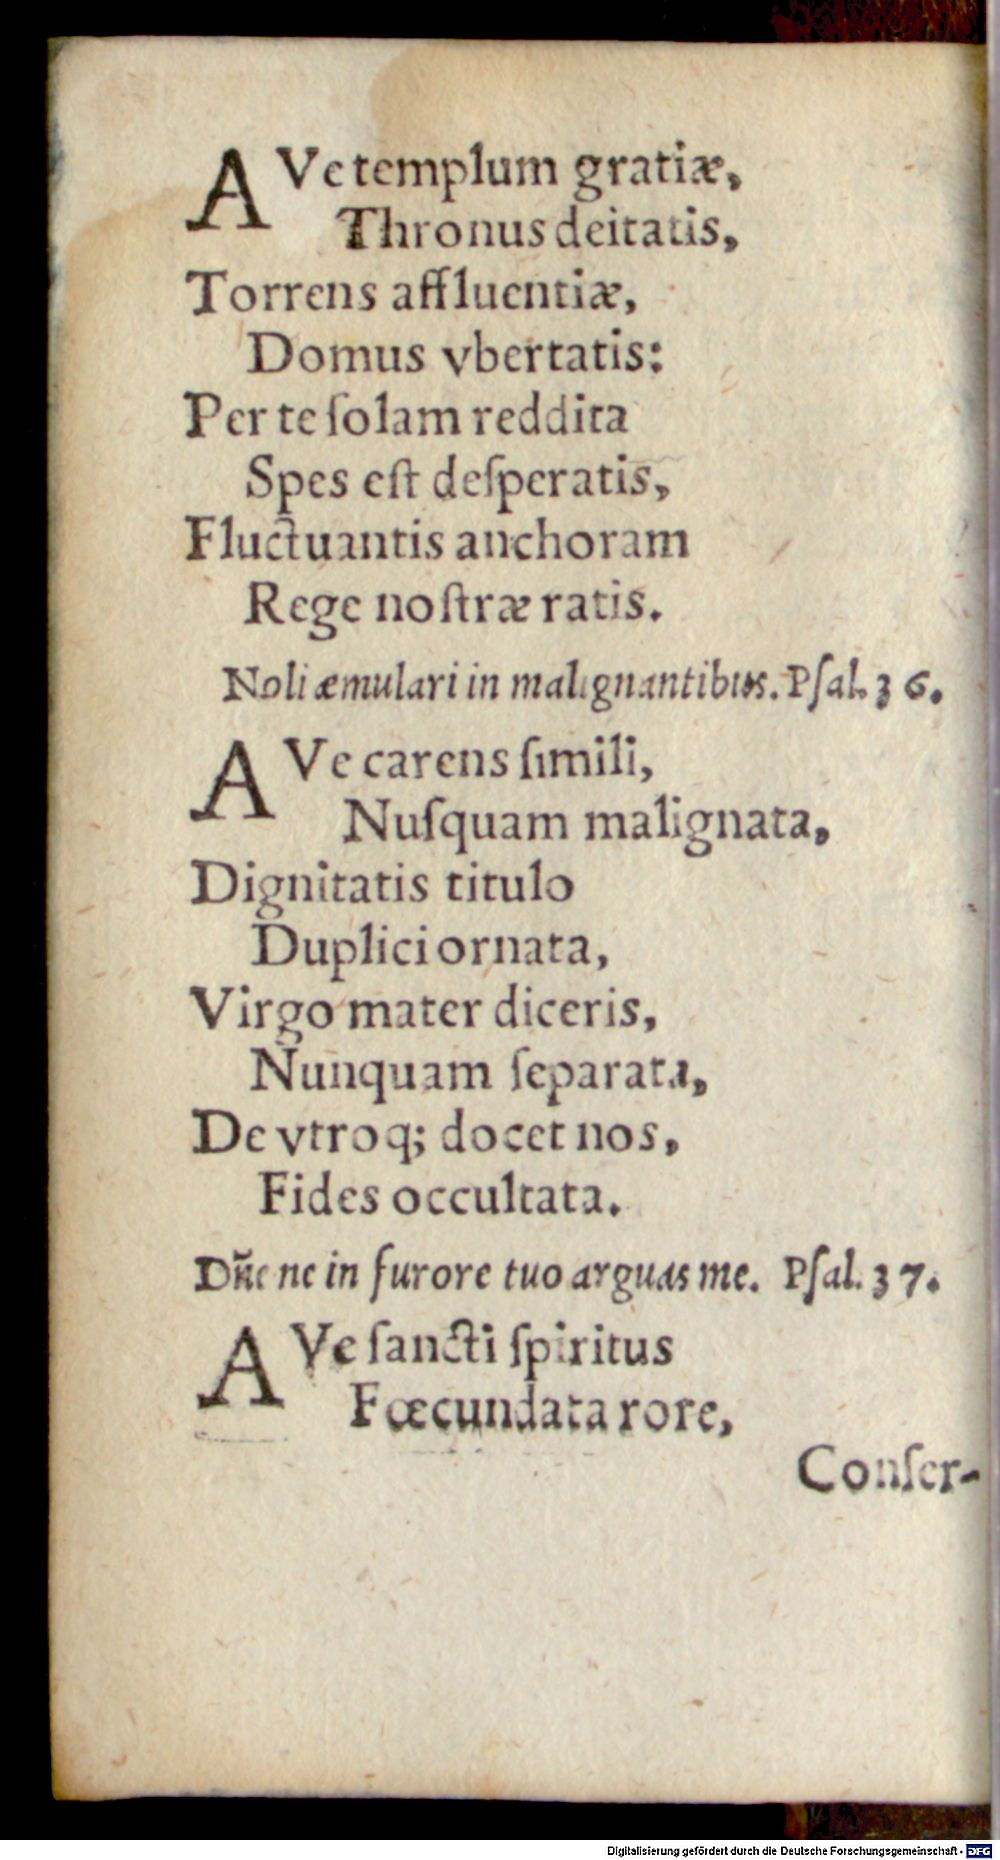 AVe templum gratiæ,
Thronus deitatis,
Torrens affluentiæ,
Domus vbertatis:
Per te ſolam reddita
Spes eſt deſperatis,
Fluctuantis anchoram
Rege noſtræ ratis.
Noli æmulari in malignantibus. Pſal. 36.
AVe carens ſimili,
Nuſquam malignata,
Dignitatis titulo
Duplici ornata,
Virgo mater diceris,
Nunquam ſeparata,
De vtroq; docet nos,
Fides occultata.
Dñe ne in furore tuo arguas me. Pſal. 37.
AVe ſancti ſpiritus
Fœcundata rore,
Conſer-
Digitalisierung gefördert durch die Deutsche Forschungsgemeinschaft - DFG